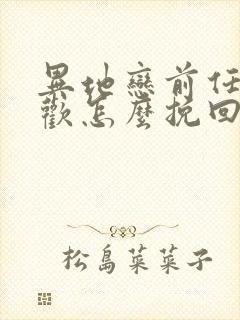 異地戀前任
歡怎麼挽回
松島菜菜子